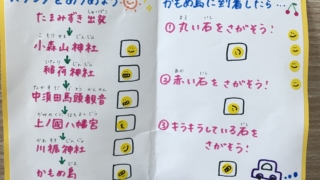 たまみずき 出発
小森山神社
稲荷神社
中須田馬頭観音
上ノ國八幡宮
川裾神社
かもめ島
かもめ島に到着したら…
①丸い石をさがそう!
②赤い石をさがそう!
③キラキラしている石を
さがそう!